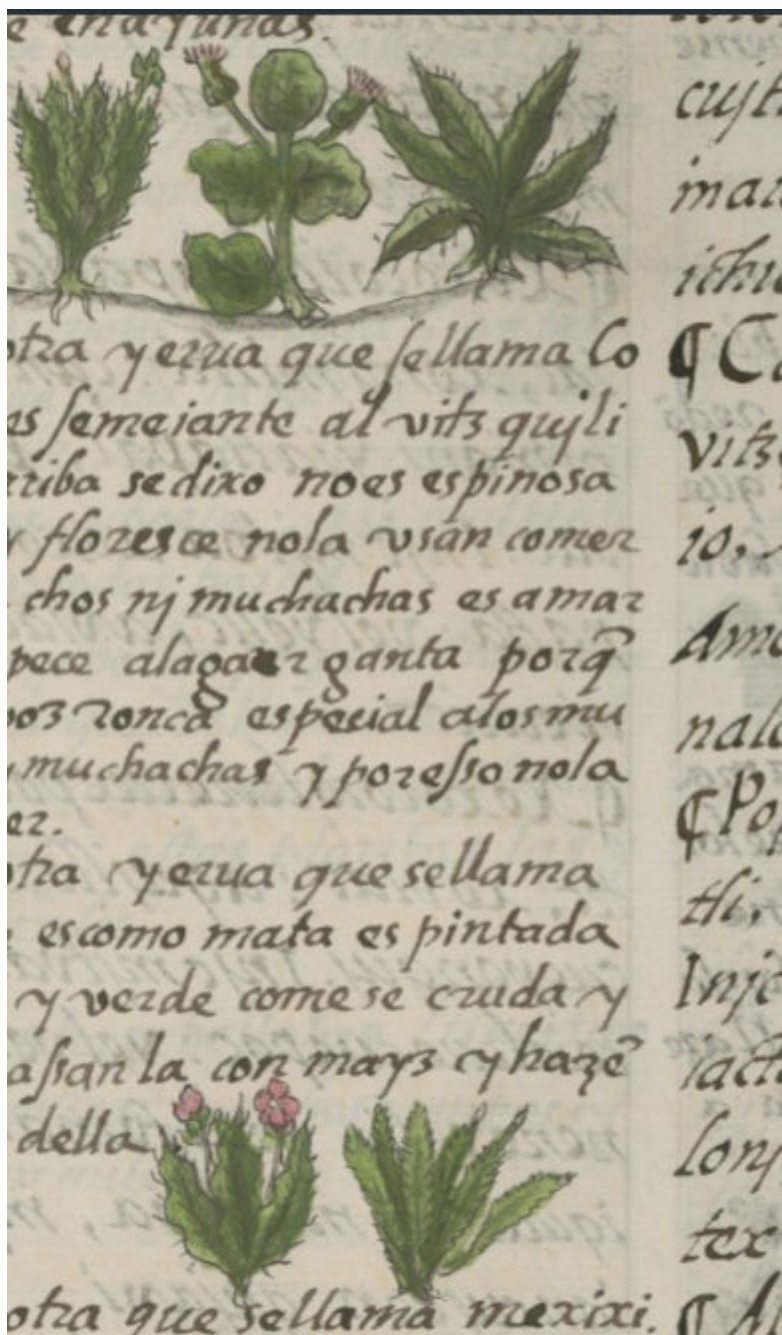 e enayunas.
otra yerua que sellama Co
es semeiante al vitz qujli
rriba se dixo no es espinosa
y floresce nola vsan comer
chos nj muchachas es amar
pece alagaer ganta porq̃
boz ronca especial alos mu
y muchachas y poresso nola
er.
otra yerua que sellama
escomo mata es pintada
y verde comese cruda y
assan la con mayz cyhazẽ
della
otra que sellama mexixi.
cujt
ichu
¶ Ca
vitz
io,
Amo
nalo
¶ Po
tli,
Inje
iach
lonj
tex